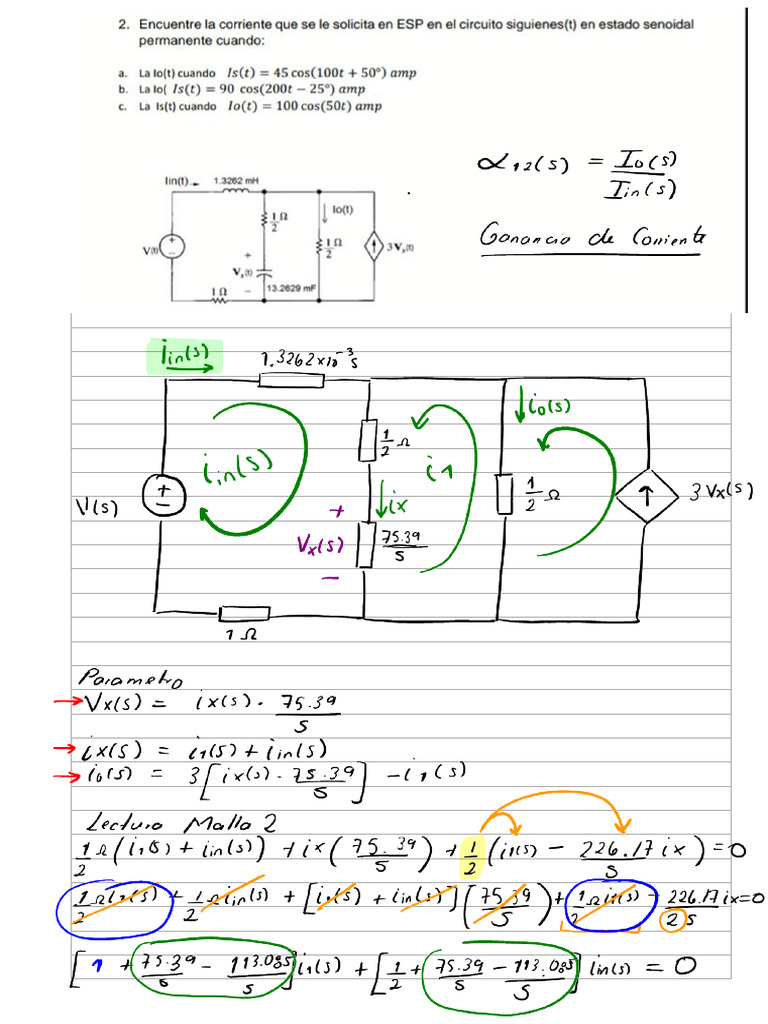 2. Encuentre la corriente que se le solicita en ESP en el circuito siguienes(t) en estado senoidal
permanente cuando:
a. La Io(t) cuando Is(t) = 45 cos(100t + 50°) amp
b. La Io( Is(t) = 90 cos(200t − 25°) amp
c. La Is(t) cuando Io(t) = 100 cos(50t) amp
α12(s) = Io(s) / Iin(s)
Ganancia de Corriente
Iin(t) 1.3262 mH
1/2 Ω
Io(t)
1/2 Ω
V(t)
+
−
3Vx(t)
+
Vx(t)
−
13.2629 mF
1 Ω
iin(s)
1.3262x10^-3 s
1/2 Ω
io(s)
iin(s)
i1
ix
1/2 Ω
3Vx(s)
V(s)
+
−
+
Vx(s)
−
75.39/s
1Ω
Parametro
Vx(s) = ix(s) · 75.39/s
ix(s) = i1(s) + iin(s)
io(s) = 3[ix(s) · 75.39/s] − i1(s)
Lectura Malla 2
1/2 Ω(i1(s) + iin(s)) + ix(75.39/s) + 1/2(i1(s) − 226.17/s ix) = 0
1/2 Ω i1(s) + 1/2 Ω iin(s) + [i1(s) + iin(s)](75.39/s) + 1/2 Ω i1(s) − 226.17/2s ix = 0
[1 + 75.39/s − 113.085/s] i1(s) + [1/2 + 75.39/s − 113.085/s] iin(s) = 0